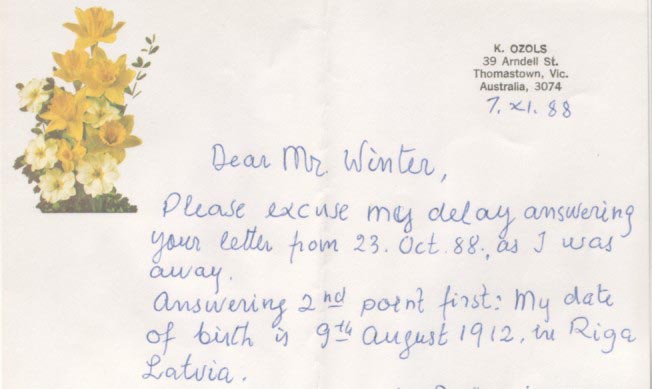 K. OZOLS
39 Arndell St.
Thomastown, Vic.
Australia, 3074
7. XI. 88
Dear Mr. Winter,
Please excuse my delay answering
your letter from 23. Oct. 88., as I was
away.
Answering 2nd point first: My date
of birth is 9th August 1912, in Riga
Latvia.